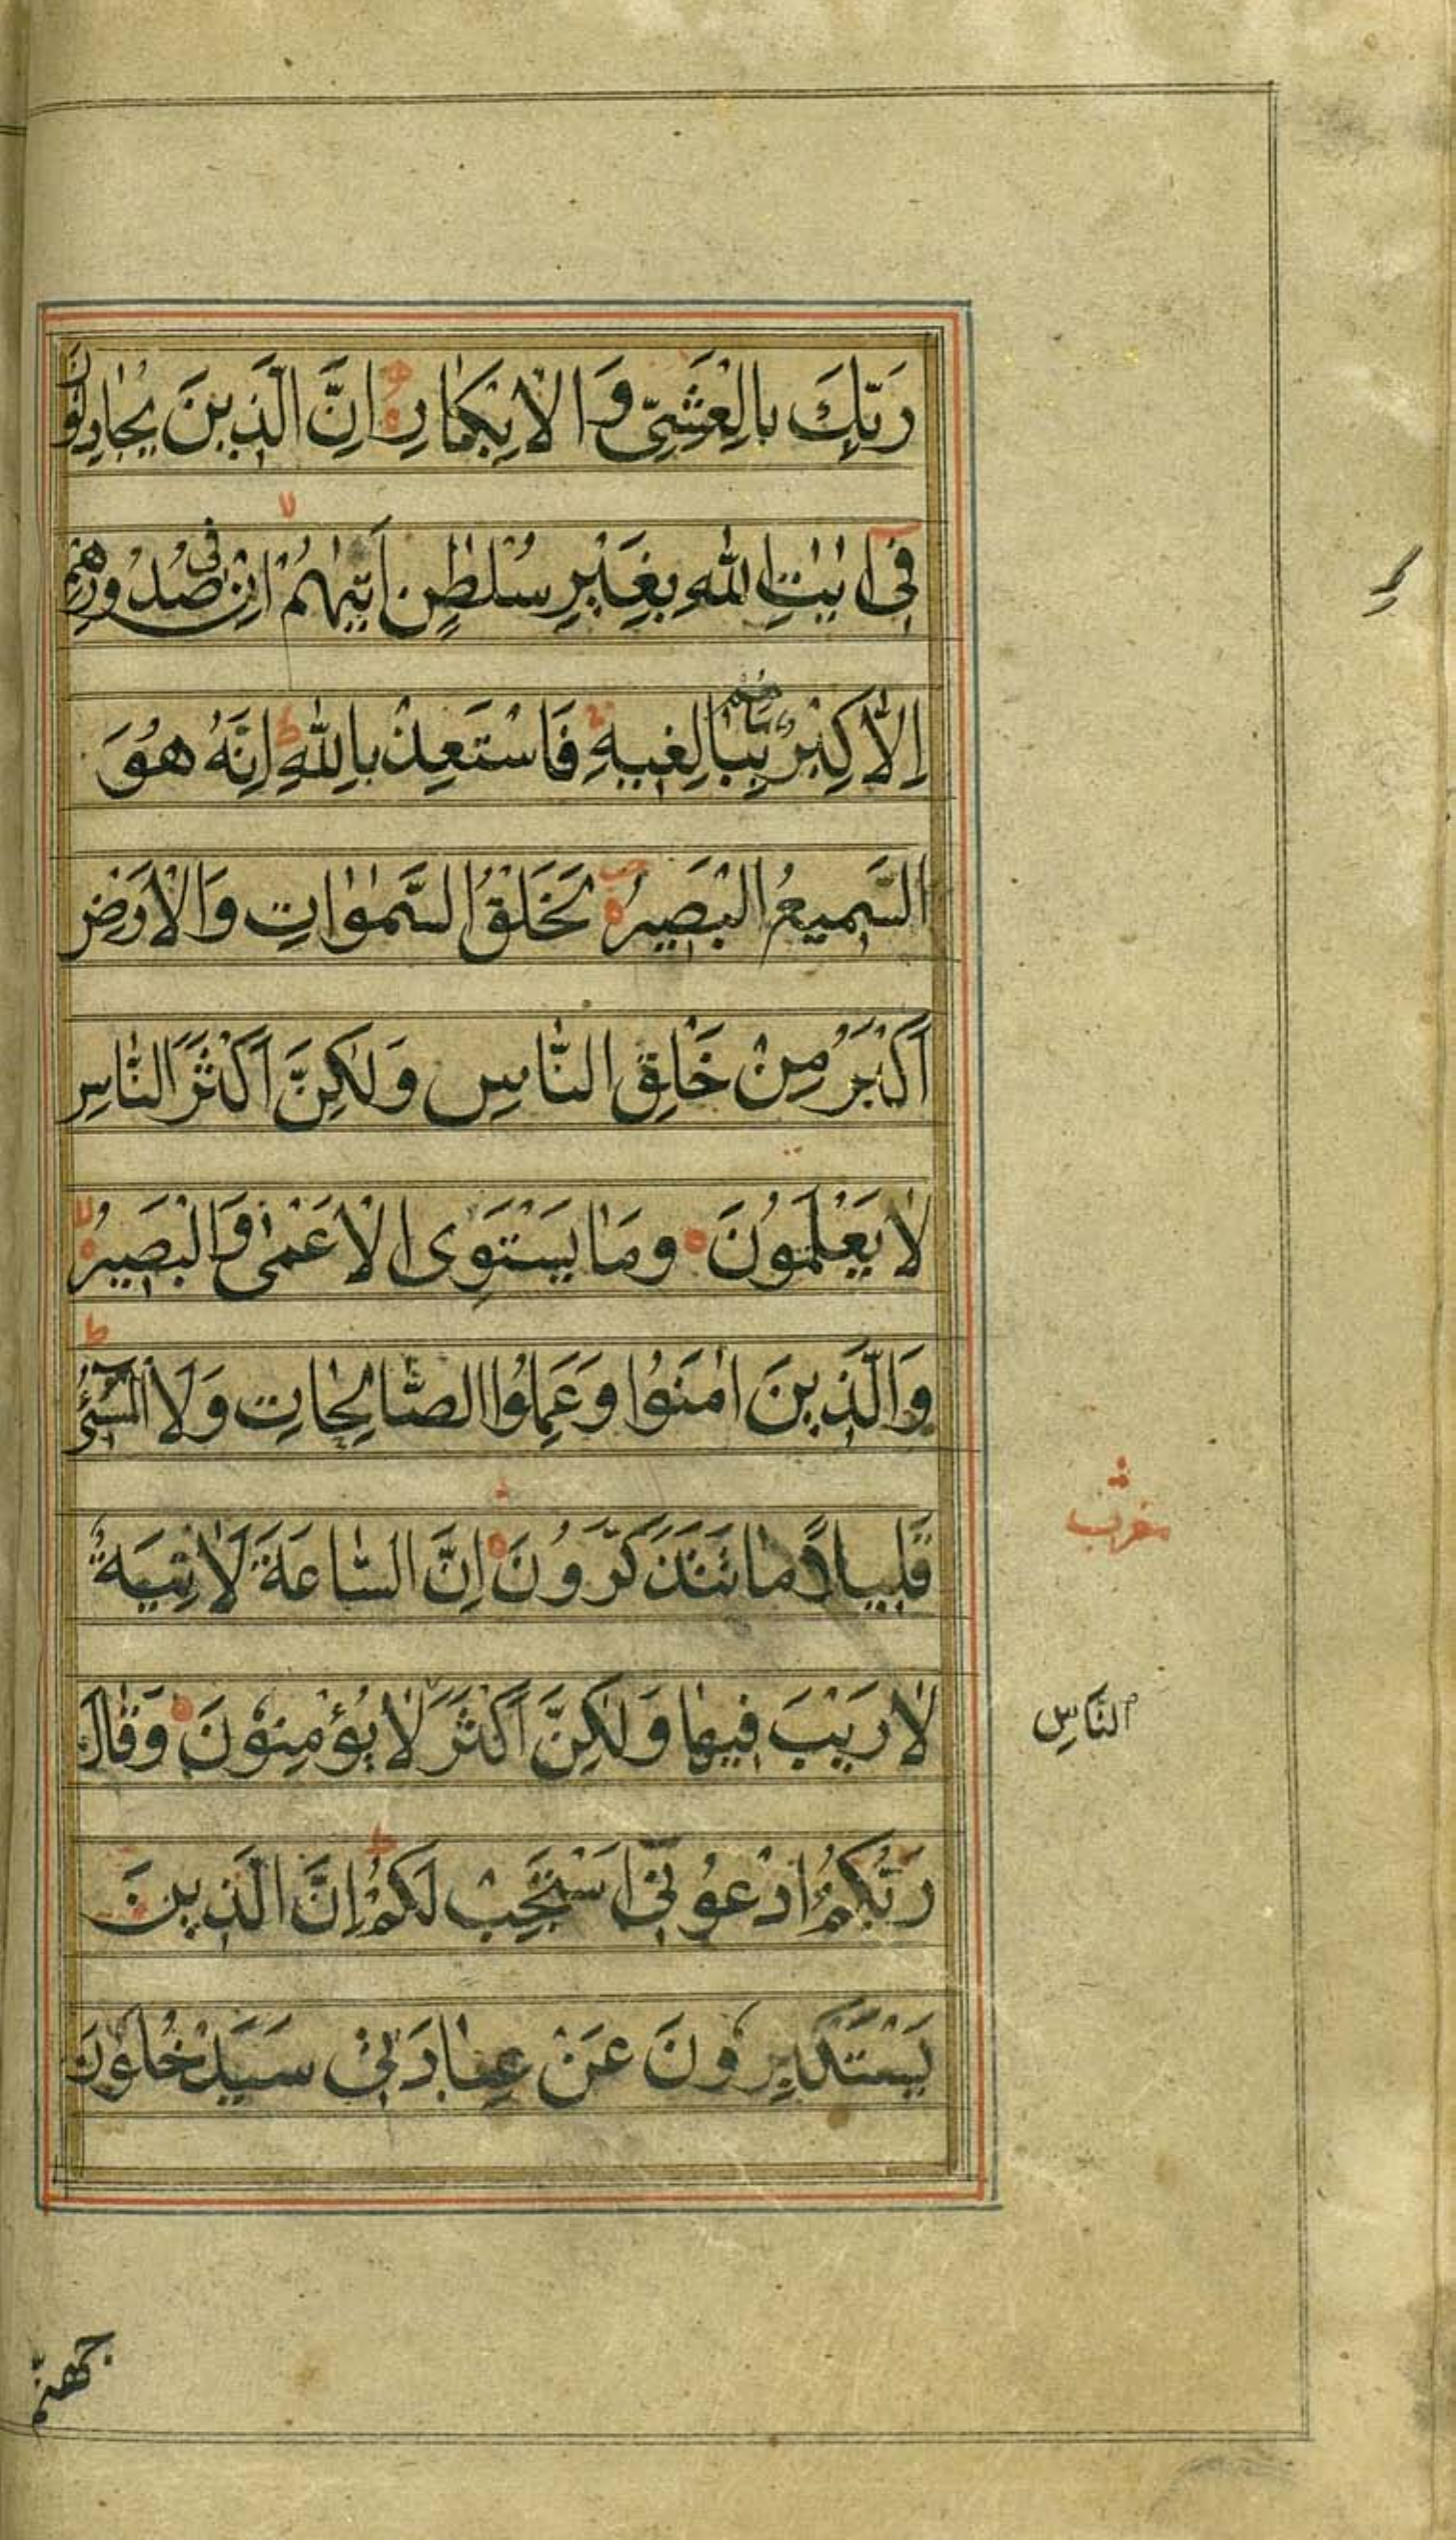 رَبِّكَ بِالْعَشِيِّ وَالْاِبْكَارِ اِنَّ الَّذِينَ يُجَادِلُونَ
فِي اٰيٰتِ اللّٰهِ بِغَيْرِ سُلْطٰنٍ اَتٰيهُمْ اِنْ فِي صُدُورِهِمْ
اِلَّا كِبْرٌ مَاهُمْ بِبَالِغِيهِ فَاسْتَعِذْ بِاللّٰهِ اِنَّهُ هُوَ
السَّمِيعُ الْبَصِيرُ لَخَلْقُ السَّمٰوَاتِ وَالْاَرْضِ
اَكْبَرُ مِنْ خَلْقِ النَّاسِ وَلٰكِنَّ اَكْثَرَ النَّاسِ
لَا يَعْلَمُونَ وَمَا يَسْتَوِى الْاَعْمٰى وَالْبَصِيرُ
وَالَّذِينَ اٰمَنُوا وَعَمِلُوا الصَّالِحَاتِ وَلَا الْمُسِيْٓءُ
قَلِيلًا مَا تَتَذَكَّرُونَ اِنَّ السَّاعَةَ لَاٰتِيَةٌ
لَا رَيْبَ فِيهَا وَلٰكِنَّ اَكْثَرَ لَا يُؤْمِنُونَ وَقَالَ
النَّاسِ
رَبُّكُمُ ادْعُونِي اَسْتَجِبْ لَكُمْ اِنَّ الَّذِينَ
يَسْتَكْبِرُونَ عَنْ عِبَادَتِيْ سَيَدْخُلُونَ
جهنم